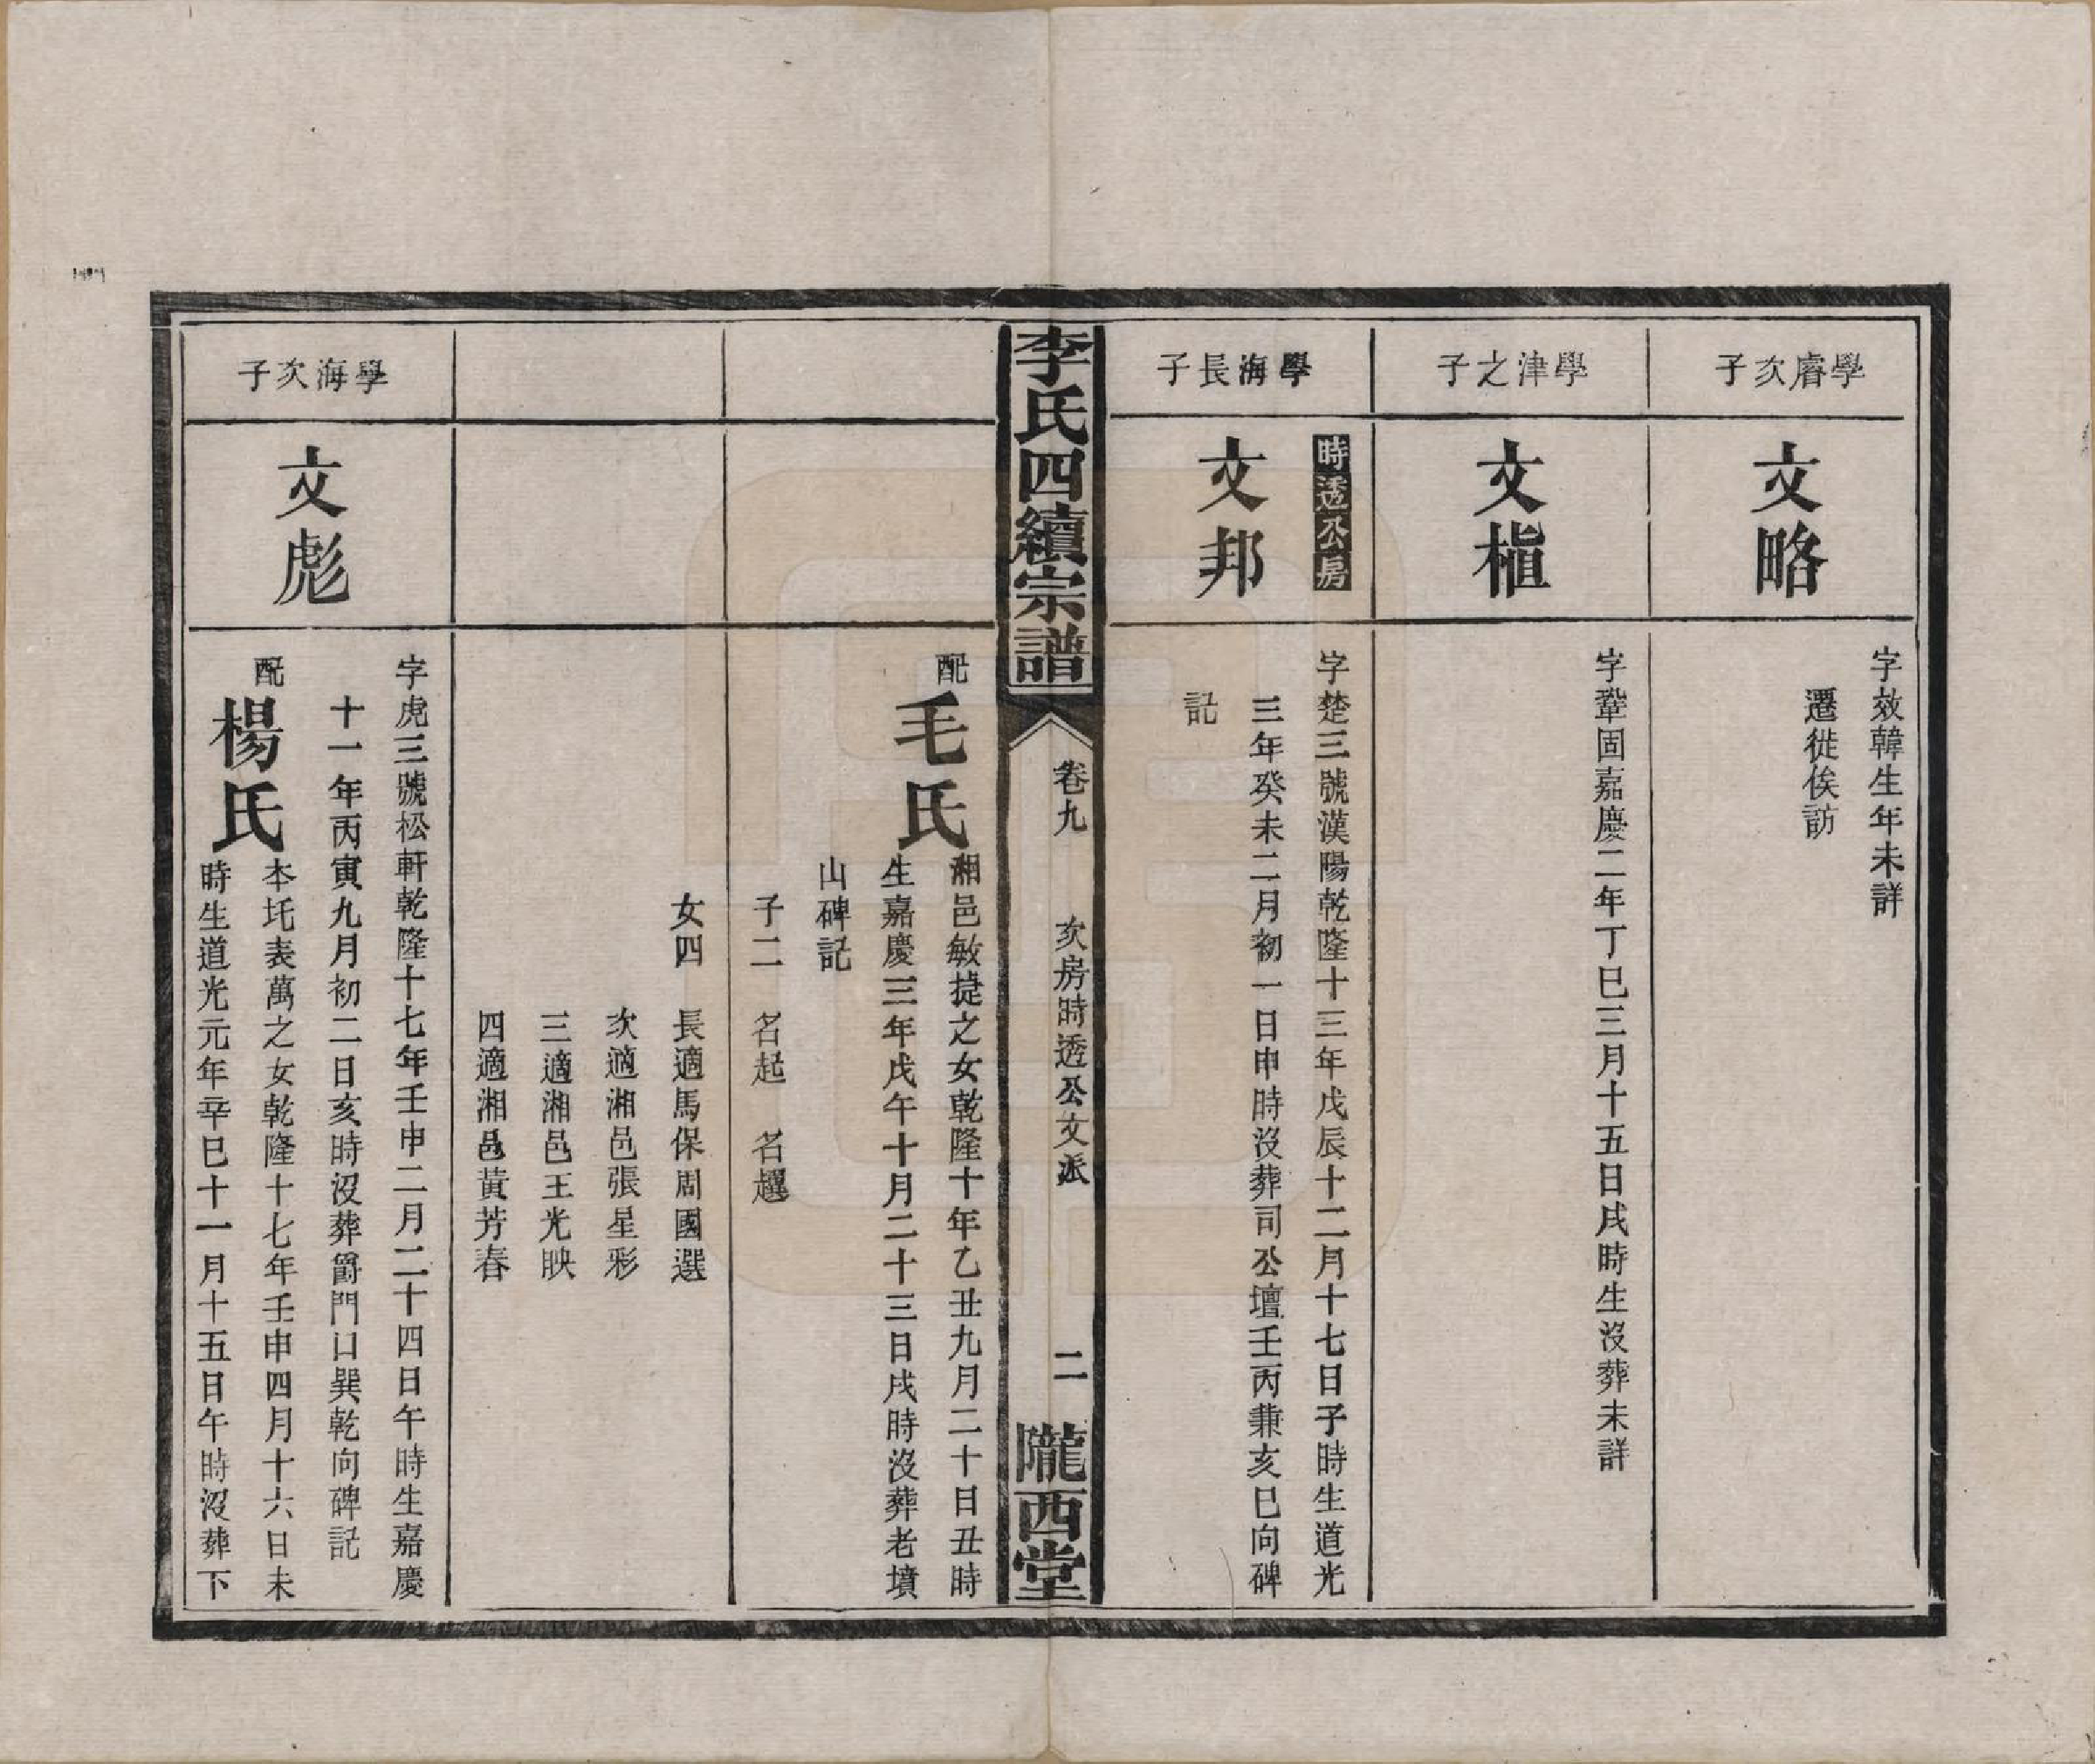 學睿次子
文略
字效韓生年未詳
遷徙俟訪
學津之子
文植
字鞏固嘉慶二年丁巳三月十五日戌時生沒葬未詳
時透公房
學海長子
文邦
字楚三號漢陽乾隆十三年戊辰十二月十七日子時生道光
三年癸未二月初一日申時沒葬司公壇壬丙兼亥巳向碑
記
李氏四續宗譜
卷九
次房時透公文派
二
隴西堂
配
毛氏
湘邑敏捷之女乾隆十年乙丑九月二十日丑時
生嘉慶三年戊午十月二十三日戌時沒葬老墳
山碑記
子二 名起 名趯
女四 長適馬保周國選
次適湘邑張星彩
三適湘邑王光映
四適湘邑黃芳春
學海次子
文彪
字虎三號松軒乾隆十七年壬申二月二十四日午時生嘉慶
十一年丙寅九月初二日亥時沒葬爵門口巽乾向碑記
配
楊氏
本圫表萬之女乾隆十七年壬申四月十六日未
時生道光元年辛巳十一月十五日午時沒葬下